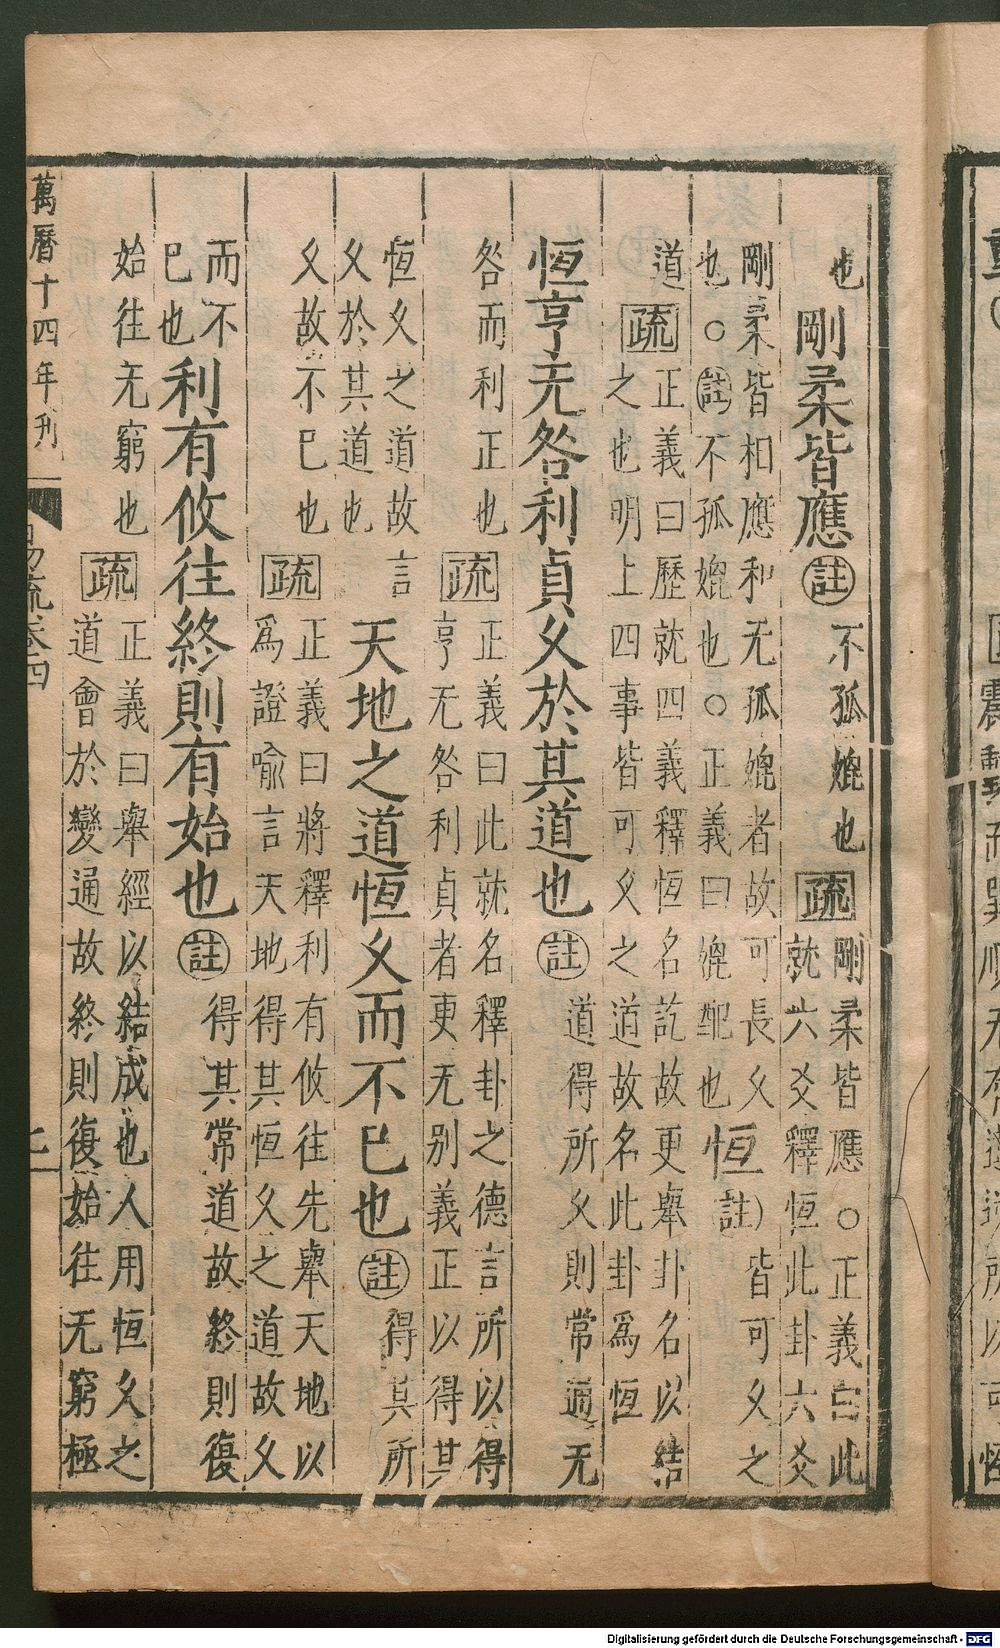 也剛柔皆應註不孤媲也疏剛柔皆應○正義曰此
就六爻釋恆此卦六爻
剛柔皆相應和无孤媲者故可長久
也○註不孤媲也○正義曰媲配也恆註皆可久之
道疏正義曰歷就四義釋恆名訖故更舉卦名以結
之也明上四事皆可久之道故名此卦爲恆
恆亨无咎利貞久於其道也註道得所久則常通无
咎而利正也疏正義曰此就名釋卦之德言所以得
亨无咎利貞者更无別義正以得其
恆久之道故言
久於其道也天地之道恆久而不已也註得其所
久故不已也疏正義曰將釋利有攸往先舉天地以
爲證喻言天地得其恆久之道故久
而不
已也利有攸往終則有始也註得其常道故終則復
始往无窮也疏正義曰舉經以結成也人用恆久之
道會於變通故終則復始往无窮極
萬曆十四年刊
易疏卷四
Digitalisierung gefördert durch die Deutsche Forschungsgemeinschaft - DFG